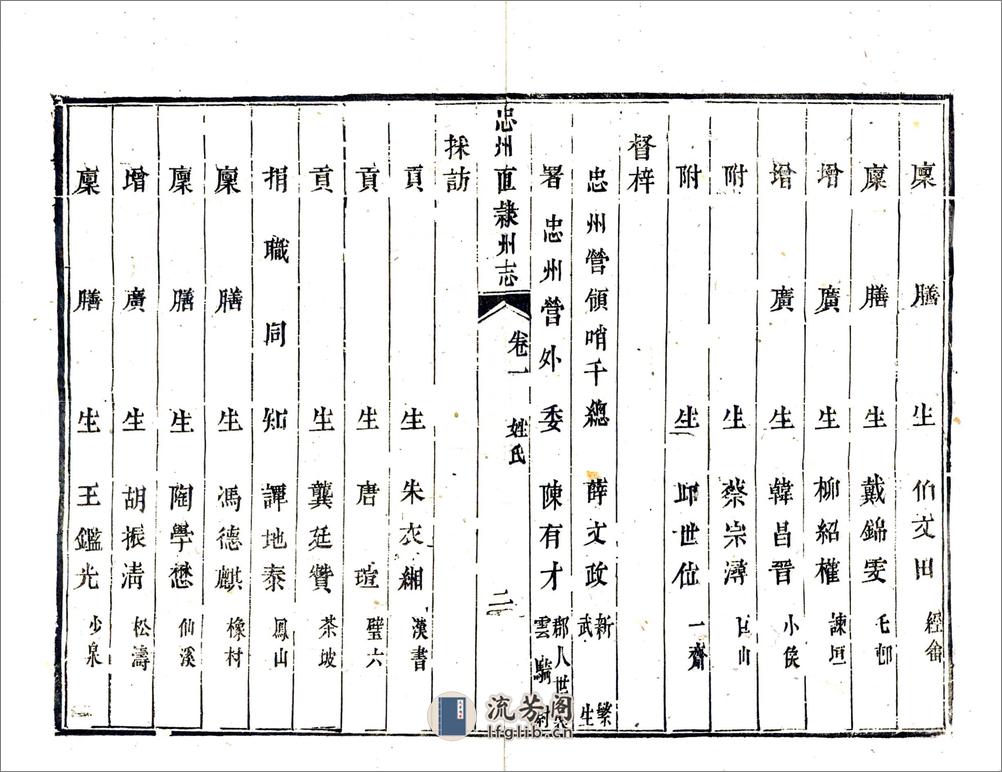 廩膳生伯文田經畬
廩膳生戴錦雯毛邨
增廣生柳紹權諫垣
增廣生韓昌晋小侯
附生蔡宗濤
附生邱世位一齋
督梓
忠州營領哨千總薛文政新繁武生
署忠州營外委陳有才郡人世襲雲騎尉
忠州直隸州志
卷一
姓氏
二
採訪
貢生朱衣緗漢書
貢生唐瑄璧六
貢生龔廷贊茶坡
捐職同知譚地泰鳳山
廩膳生馮德麒橡村
廩膳生陶學懋仙溪
增廣生胡振清松濤
廩膳生王鑑光少泉
流芳阁
lfglib.cn